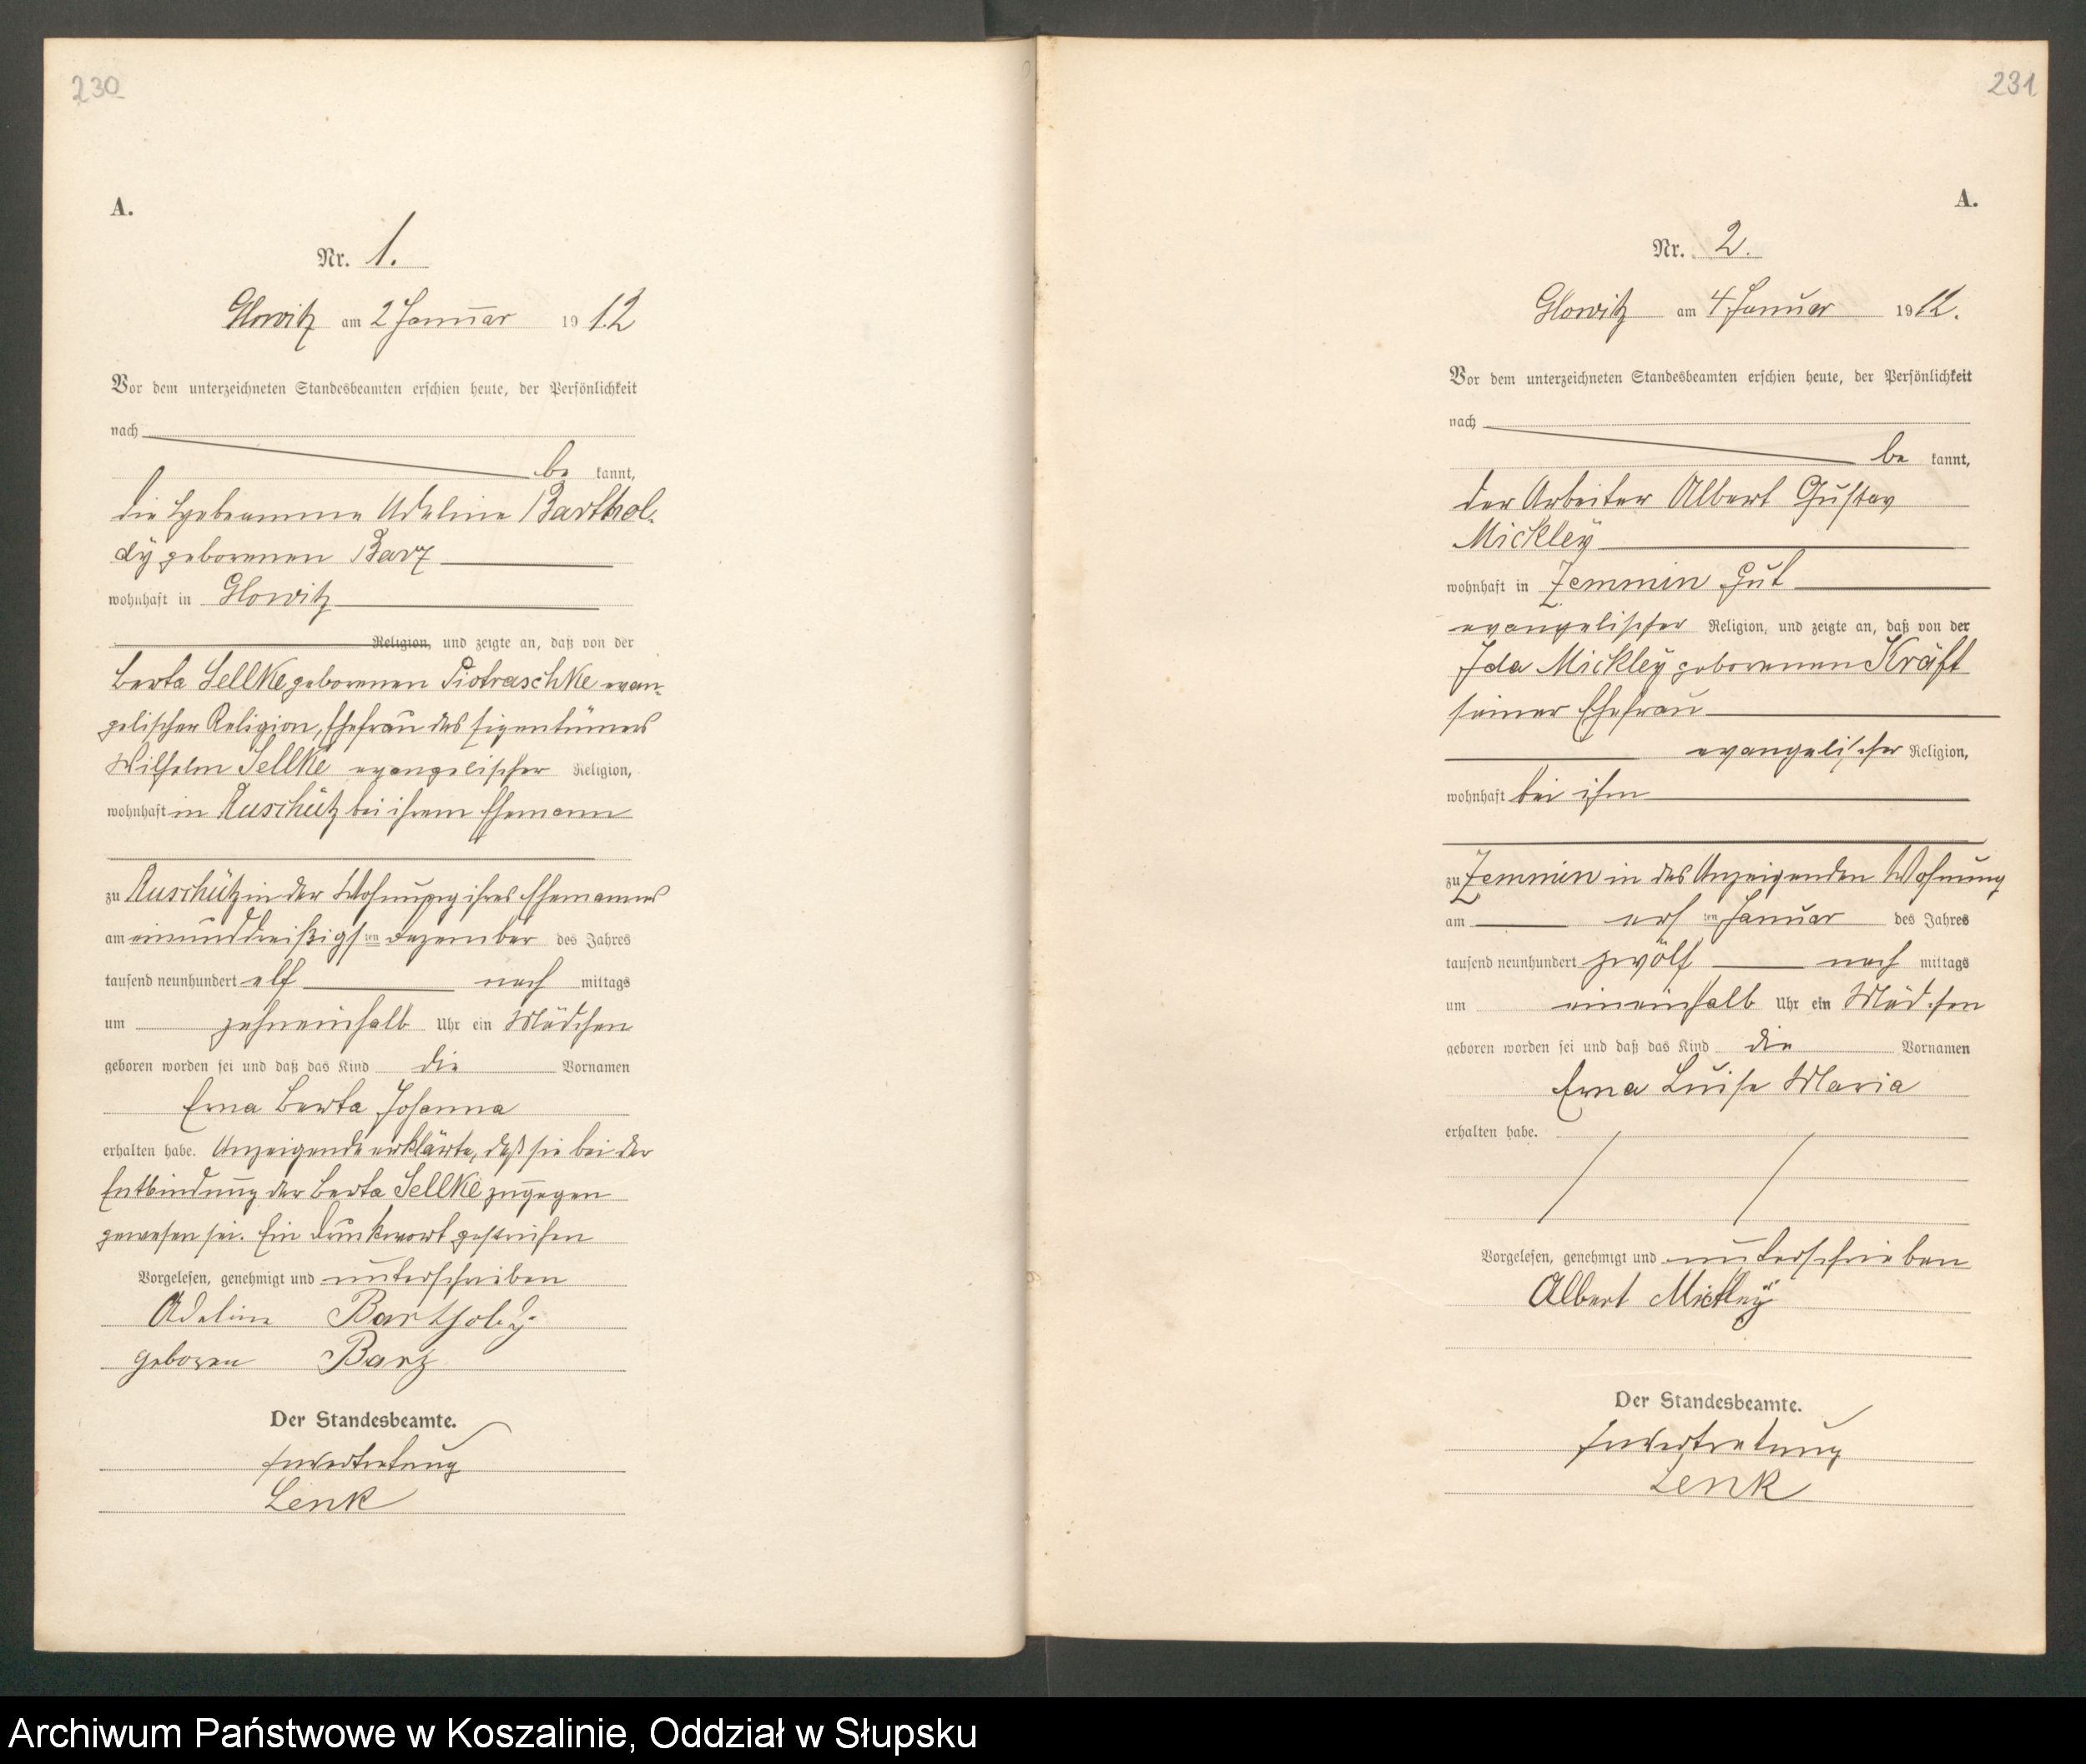 230
A.
Nr. 1.
Glowitz am 2 Januar 1912
Vor dem unterzeichneten Standesbeamten erschien heute, der Persönlichkeit
nach
be kannt,
die Hebeamme Adeline Barthol-
dÿ geborenen Barz
wohnhaft in Glowitz
Religion, und zeigte an, daß von der
Berta Sellke geborenen Piotraschke evan-
gelischer Religion, Ehefrau des Eigentümers
Wilhelm Sellke evangelischer Religion,
wohnhaft in Ruschütz bei ihrem Ehemann
zu Ruschütz in der Wohnung ihres Ehemannes
am einunddreißigs ten Dezember des Jahres
tausend neunhundert elf nach mittags
um zehneinhalb Uhr ein Mädchen
geboren worden sei und daß das Kind die Vornamen
Erna Berta Johanna
erhalten habe. Anzeigende erklärte, daß sie bei der
Entbindung der Berta Sellke zugegen
gewesen sei. Ein Druckwort gestrichen
Vorgelesen, genehmigt und unterschrieben
Adeline Bartholdy
geboren Barz
Der Standesbeamte.
In Vertretung
Lenk
231
A.
Nr. 2.
Glowitz am 4 Januar 1912.
Vor dem unterzeichneten Standesbeamten erschien heute, der Persönlichkeit
nach
be kannt,
der Arbeiter Albert Gustav
Mickleÿ
wohnhaft in Zemmin Gut
evangelischer Religion, und zeigte an, daß von der
Ida Mickleÿ geborenen Kräft
seiner Ehefrau
evangelischer Religion,
wohnhaft bei ihm
zu Zemmin in des Anzeigenden Wohnung
am ers ten Januar des Jahres
tausend neunhundert zwölf nach mittags
um eineinhalb Uhr ein Mädchen
geboren worden sei und daß das Kind die Vornamen
Erna Luise Maria
erhalten habe.
Vorgelesen, genehmigt und unterschrieben
Albert Mickleÿ
Der Standesbeamte.
In Vertretung
Lenk
Archiwum Państwowe w Koszalinie, Oddział w Słupsku